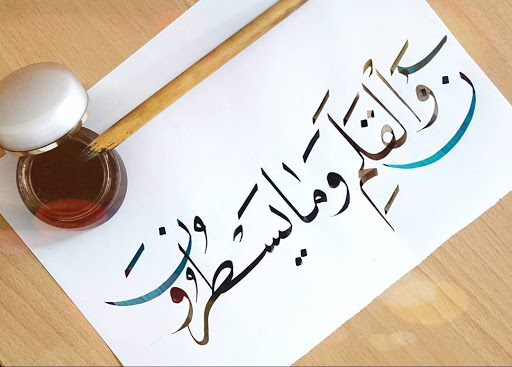 ن وَٱلْقَلَمِ وَمَا يَسْطُرُونَ